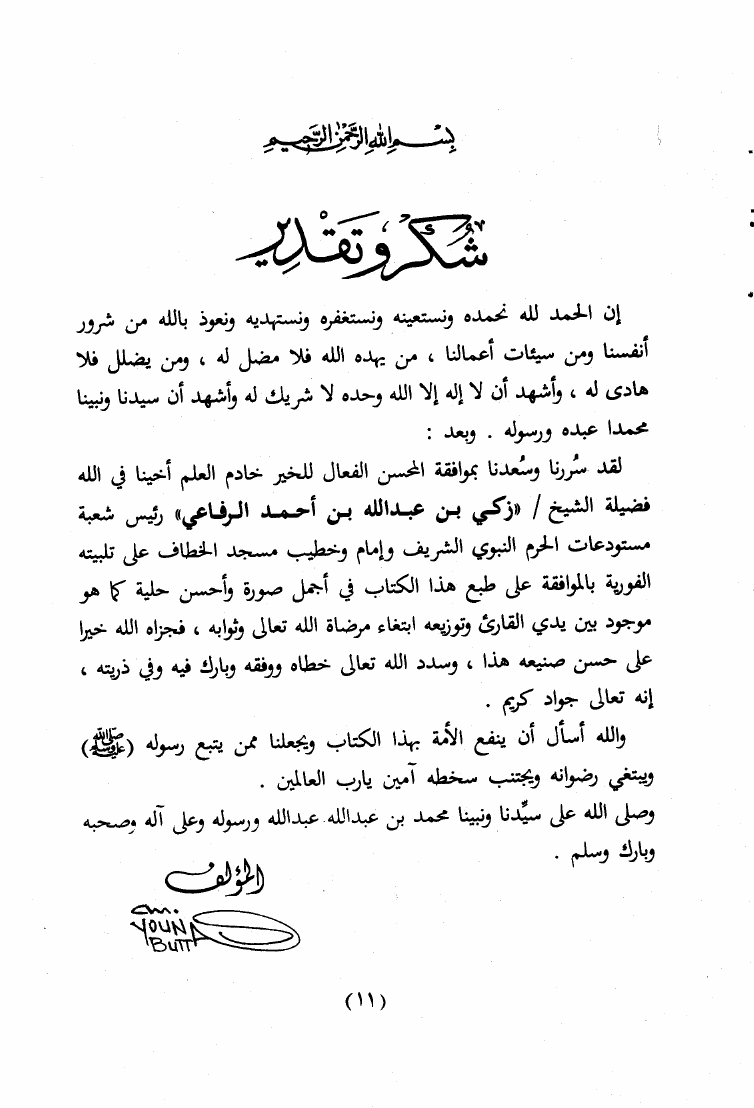 بسم الله الرحمن الرحيم
شُكْر وتَقْدِير
إن الحمد لله نحمده ونستعينه ونستغفره ونستهديه ونعوذ بالله من شرور
أنفسنا ومن سيئات أعمالنا ، من يهده الله فلا مضل له ، ومن يضلل فلا
هادى له ، وأشهد أن لا إله إلا الله وحده لا شريك له وأشهد أن سيدنا ونبينا
محمدا عبده ورسوله . وبعد :
لقد سُررنا وسُعدنا بموافقة المحسن الفعال للخير خادم العلم أخينا في الله
فضيلة الشيخ / «زكي بن عبدالله بن أحمد الرفاعي» رئيس شعبة
مستودعات الحرم النبوي الشريف وإمام وخطيب مسجد الخطاف على تلبيته
الفورية بالموافقة على طبع هذا الكتاب في أجمل صورة وأحسن حلية كما هو
موجود بين يدي القارئ وتوزيعه ابتغاء مرضاة الله تعالى وثوابه ، فجزاه الله خيرا
على حسن صنيعه هذا ، وسدد الله تعالى خطاه ووفقه وبارك فيه وفي ذريته ،
إنه تعالى جواد كريم .
والله أسأل أن ينفع الأمة بهذا الكتاب ويجعلنا ممن يتبع رسوله (ﷺ)
ويبتغي رضوانه ويجتنب سخطه آمين يارب العالمين .
وصلى الله على سيِّدنا ونبينا محمد بن عبدالله عبدالله ورسوله وعلى آله وصحبه
وبارك وسلم .
المؤلف
BUTT
(١١)